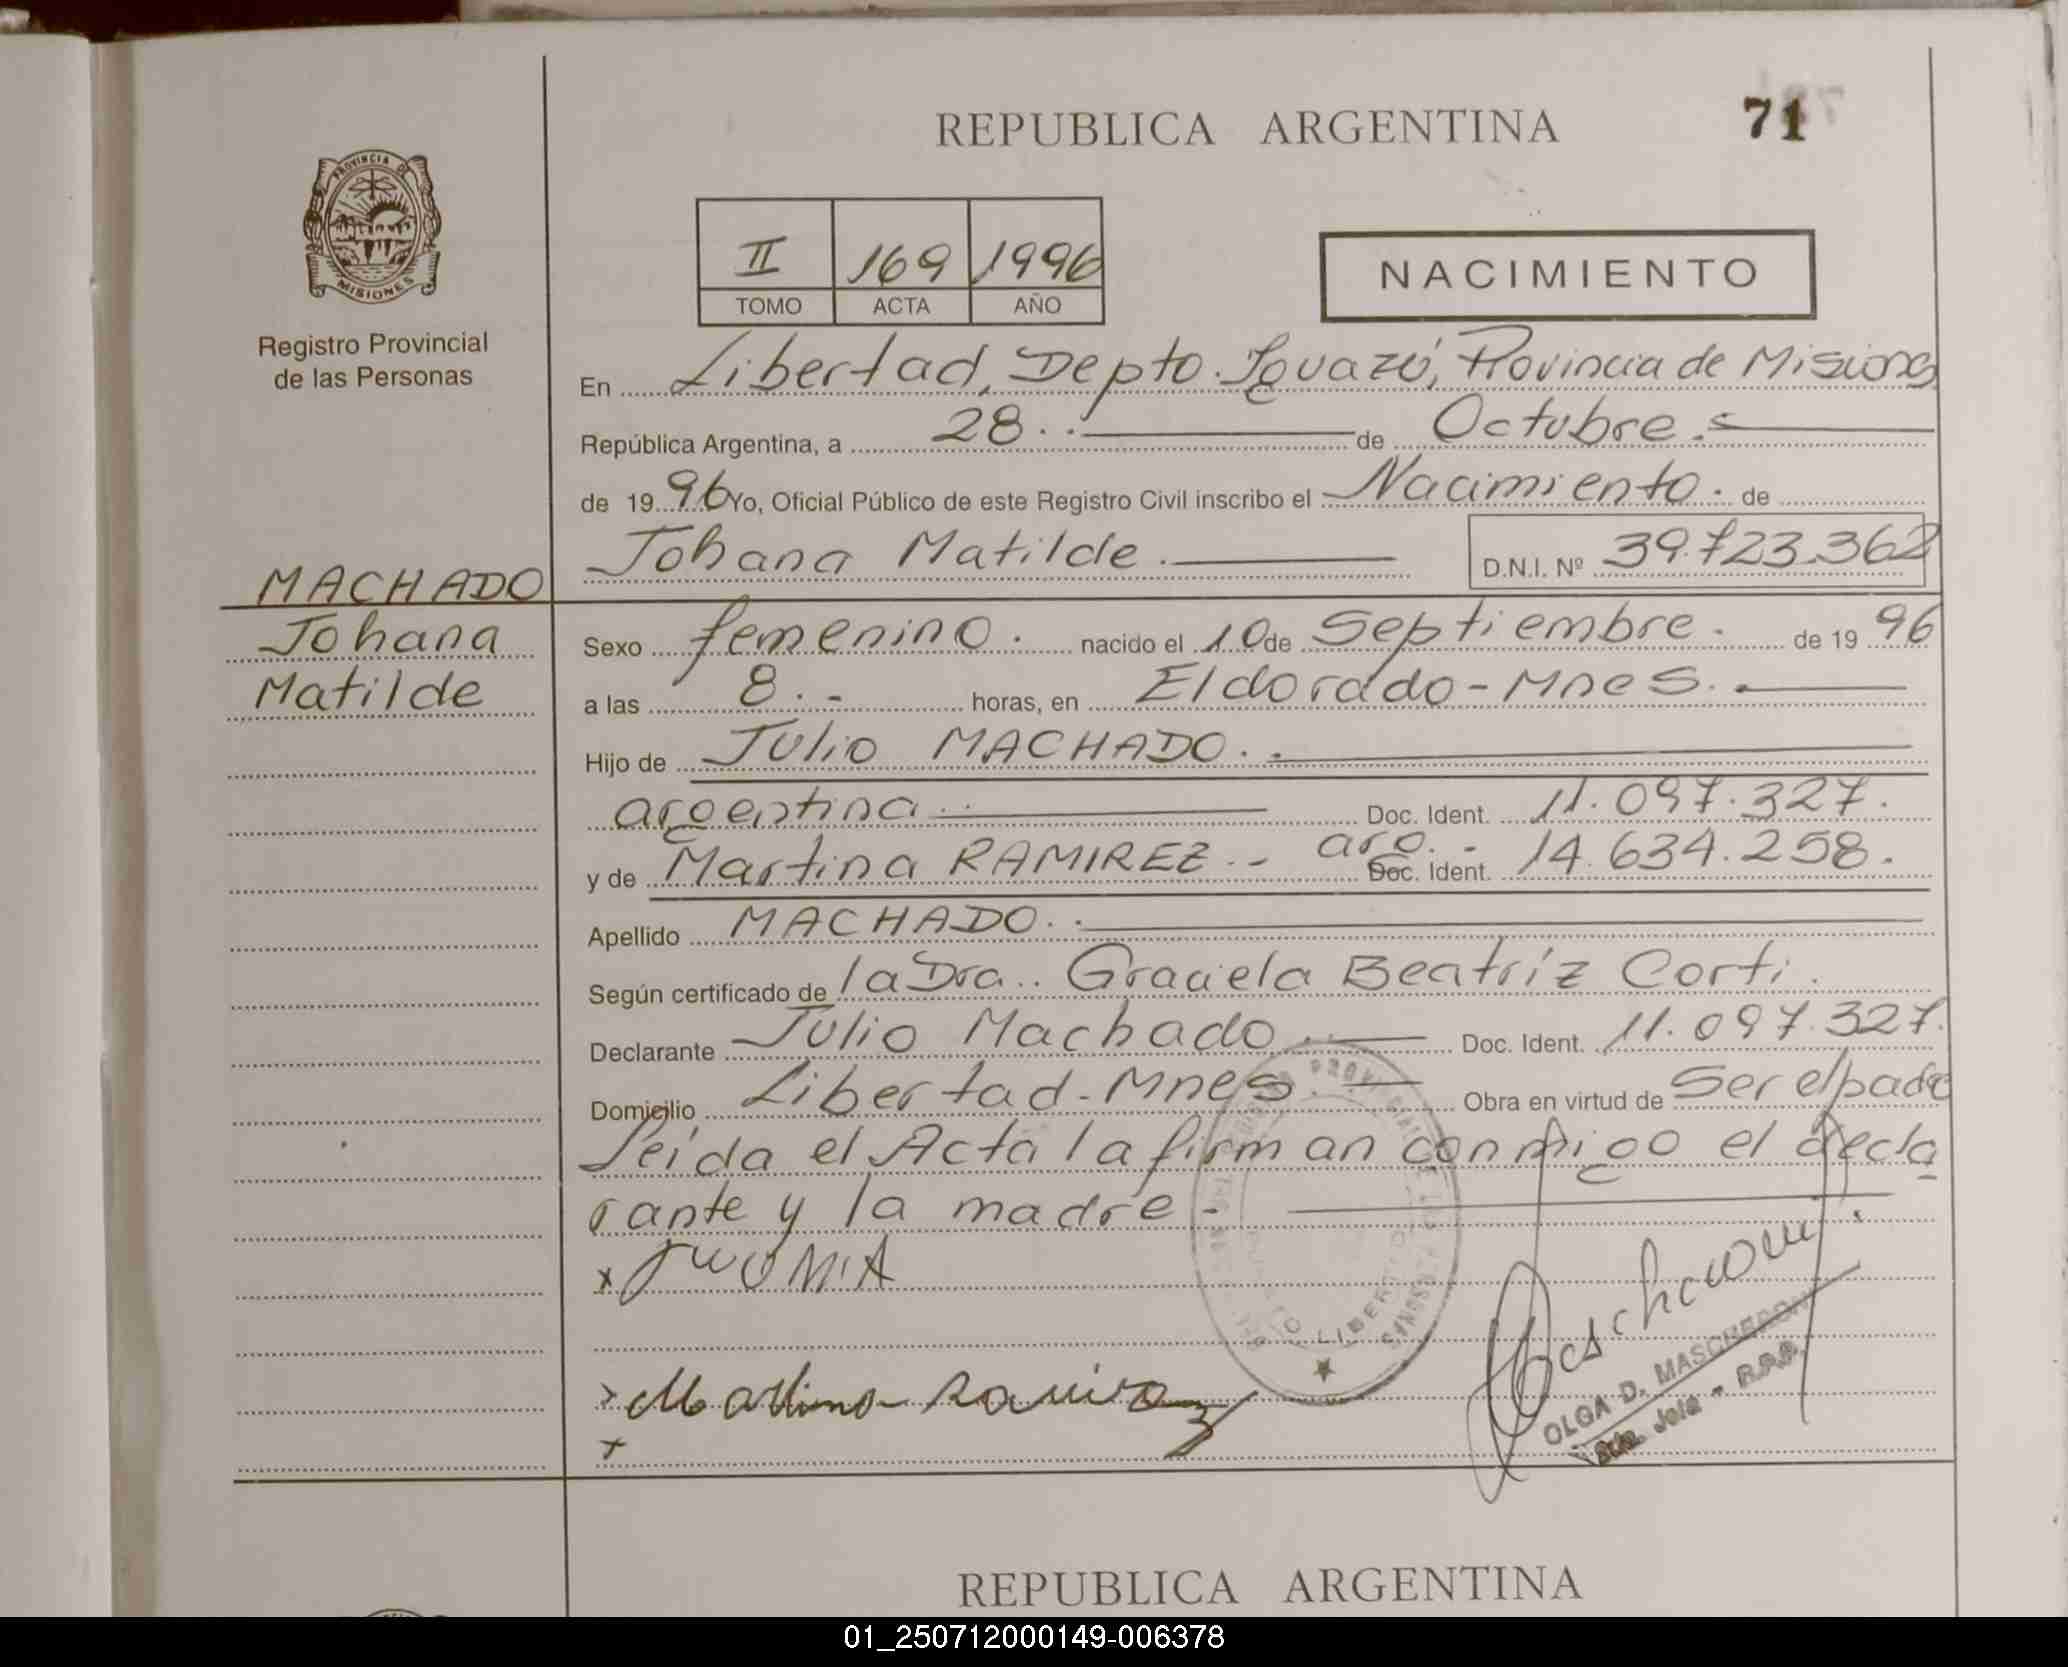 REPUBLICA ARGENTINA
71
PROVINCIA DE
MISIONES
Registro Provincial
de las Personas
II 169 1996
TOMO ACTA AÑO
NACIMIENTO
En Libertad, Depto. Iguazú, Provincia de Misiones
República Argentina, a 28.- de Octubre.-
de 1996 Yo, Oficial Público de este Registro Civil inscribo el Nacimiento. de
Johana Matilde. D.N.I. Nº 39.723.362
MACHADO
Johana
Matilde
Sexo femenino. nacido el 10 de Septiembre. de 1996
a las 8.- horas, en Eldorado-Mnes.-
Hijo de Julio MACHADO.-
argentina.- Doc. Ident. 11.097.327.
y de Martina RAMIREZ.- arg.- Doc. Ident. 14.634.258.
Apellido MACHADO.-
Según certificado de la Dra.. Graciela Beatríz Corti.
Declarante Julio Machado.- Doc. Ident. 11.097.327.
Domicilio Libertad-Mnes.- Obra en virtud de Ser el padre
Leída el Acta la firman conmigo el decla
rante y la madre.-
x
Martina Ramirez
x
LIBERTAD
OLGA D. MASCHERONI
R.P.P.
REPUBLICA ARGENTINA
01_250712000149-006378